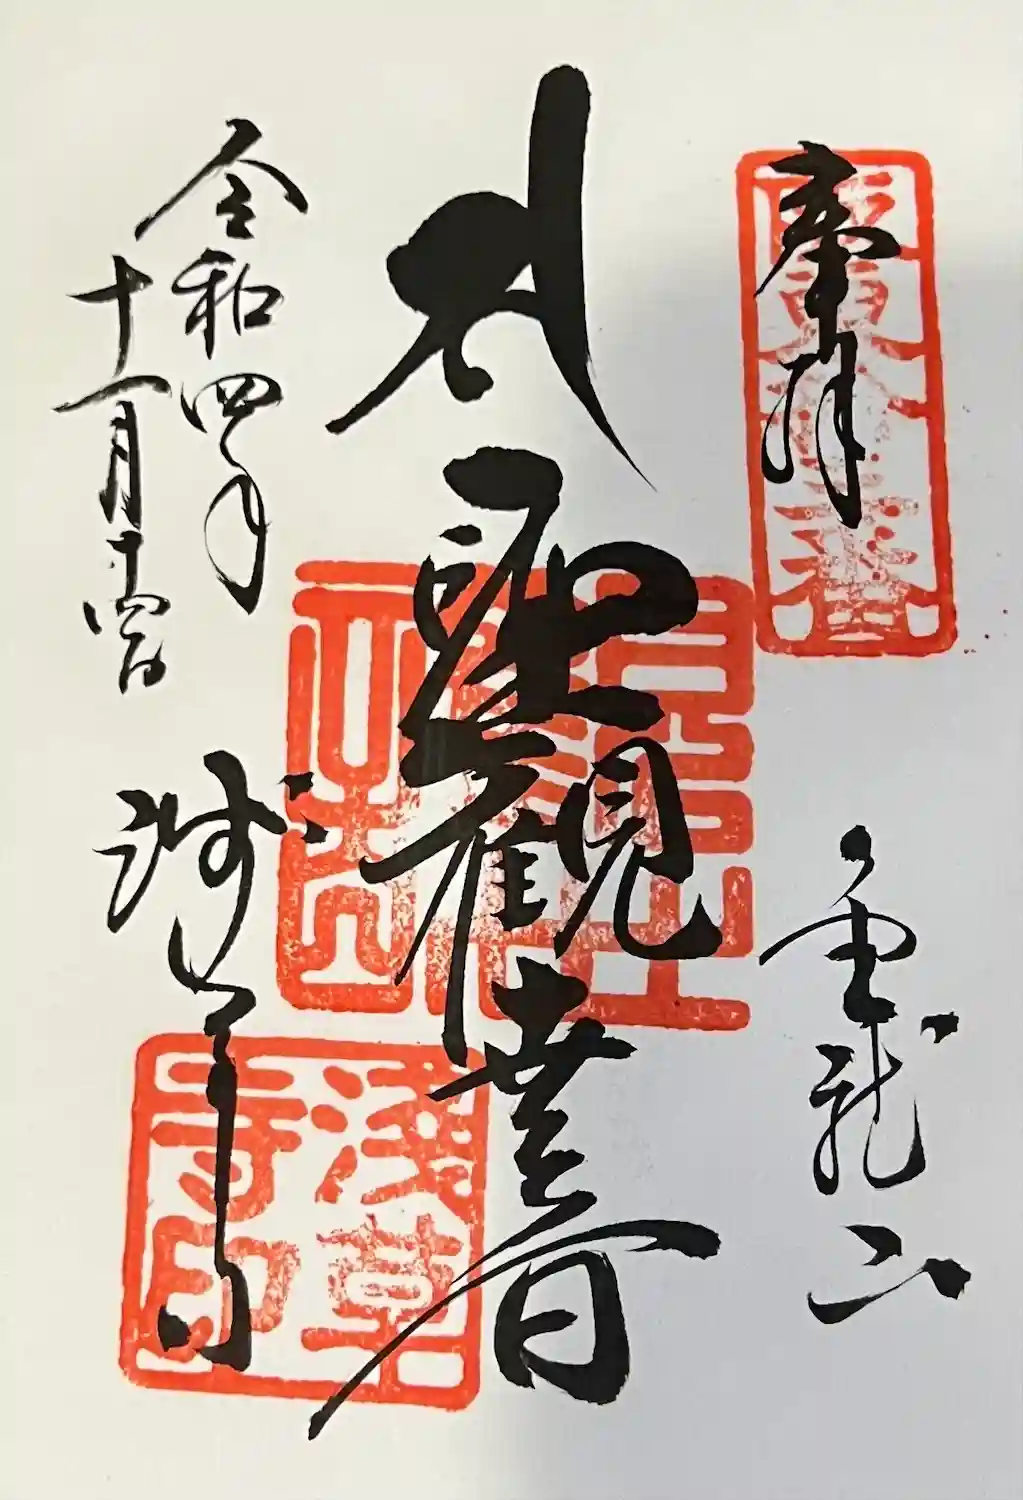 奉拝
坂東十三番
金龍山
聖観世音
浅草寺
令和四年
十一月十四日
浅草寺印